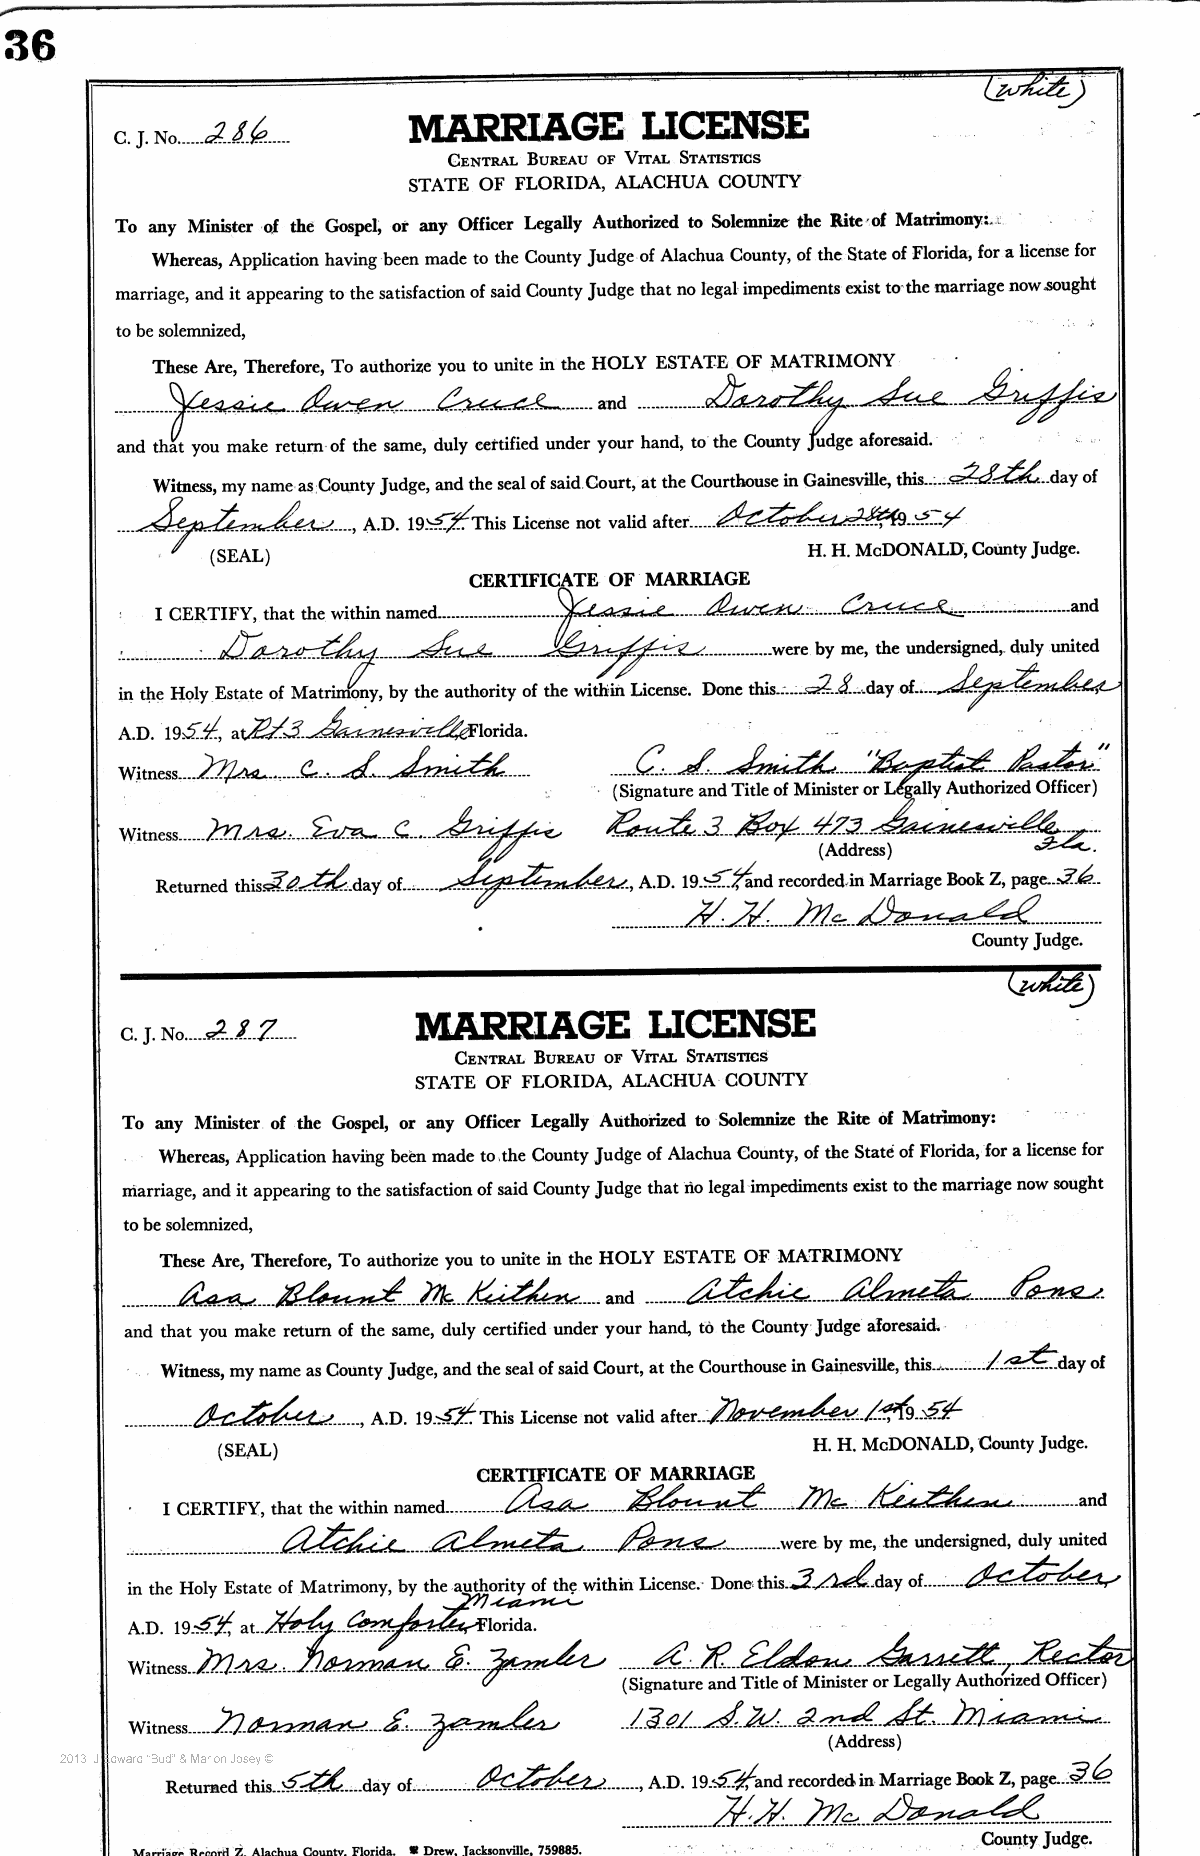 36
(white)
C. J. No. 286
MARRIAGE LICENSE
CENTRAL BUREAU OF VITAL STATISTICS
STATE OF FLORIDA, ALACHUA COUNTY
To any Minister of the Gospel, or any Officer Legally Authorized to Solemnize the Rite of Matrimony:
Whereas, Application having been made to the County Judge of Alachua County, of the State of Florida, for a license for
marriage, and it appearing to the satisfaction of said County Judge that no legal impediments exist to the marriage now sought
to be solemnized,
These Are, Therefore, To authorize you to unite in the HOLY ESTATE OF MATRIMONY
Jessie Owen Cruce and Dorothy Sue Griffis
and that you make return of the same, duly certified under your hand, to the County Judge aforesaid.
Witness, my name as County Judge, and the seal of said Court, at the Courthouse in Gainesville, this 28th day of
September, A.D. 1954. This License not valid after October 28th, 1954
(SEAL) H. H. McDONALD, County Judge.
CERTIFICATE OF MARRIAGE
I CERTIFY, that the within named Jessie Owen Cruce and
Dorothy Sue Griffis were by me, the undersigned, duly united
in the Holy Estate of Matrimony, by the authority of the within License. Done this 28 day of September
A.D. 1954, at Rt 3 Gainesville Florida.
Witness Mrs. C. S. Smith C. S. Smith "Baptist Pastor"
(Signature and Title of Minister or Legally Authorized Officer)
Witness Mrs. Eva C. Griffis Route 3 Box 473 Gainesville Fla.
(Address)
Returned this 30th day of September, A.D. 1954, and recorded in Marriage Book Z, page 36
H. H. McDonald
County Judge.
(white)
C. J. No. 287
MARRIAGE LICENSE
CENTRAL BUREAU OF VITAL STATISTICS
STATE OF FLORIDA, ALACHUA COUNTY
To any Minister of the Gospel, or any Officer Legally Authorized to Solemnize the Rite of Matrimony:
Whereas, Application having been made to the County Judge of Alachua County, of the State of Florida, for a license for
marriage, and it appearing to the satisfaction of said County Judge that no legal impediments exist to the marriage now sought
to be solemnized,
These Are, Therefore, To authorize you to unite in the HOLY ESTATE OF MATRIMONY
Asa Blount McKeithen and Atchie Almeta Pons
and that you make return of the same, duly certified under your hand, to the County Judge aforesaid.
Witness, my name as County Judge, and the seal of said Court, at the Courthouse in Gainesville, this 1st day of
October, A.D. 1954. This License not valid after November 1st, 1954
(SEAL) H. H. McDONALD, County Judge.
CERTIFICATE OF MARRIAGE
I CERTIFY, that the within named Asa Blount McKeithen and
Atchie Almeta Pons were by me, the undersigned, duly united
in the Holy Estate of Matrimony, by the authority of the within License. Done this 3rd day of October
Miami
A.D. 1954, at Holy Comforter, Florida.
Witness Mrs. Norman E. Zamler A. R. Eldon Garrett, Rector
(Signature and Title of Minister or Legally Authorized Officer)
Witness Norman E. Zamler 1301 S.W. 2nd St. Miami
(Address)
2013 J Howard "Bud" & Marion Josey ©
Returned this 5th day of October, A.D. 1954, and recorded in Marriage Book Z, page 36
H. H. McDonald
County Judge.
Marriage Record Z, Alachua County, Florida. Drew, Jacksonville, 759885.